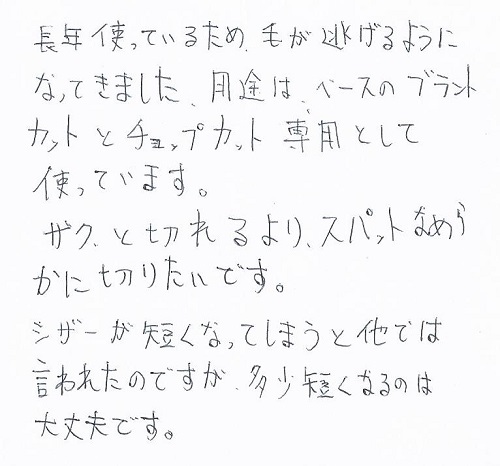 長年使っているため、毛が逃げるように
なってきました、用途は、ベースのブラント
カットとチョップカット専用として
使っています。
ザク、と切れるより、スパットなめら
かに切りたいです。
シザーが短くなってしまうと他では
言われたのですが、多少短くなるのは
大丈夫です。